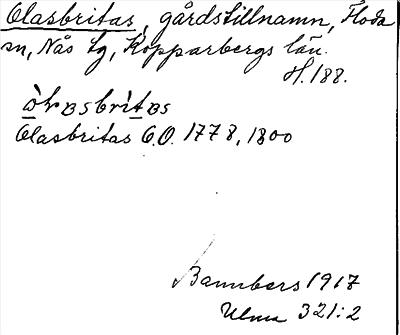 Olasbritas, gårdstillnamn, Floda
sn, Nås tg, Kopparbergs län.
H. 188.
Olasbritas O.O. 1778, 1800
Bannbers 1917
Ulma 321:2